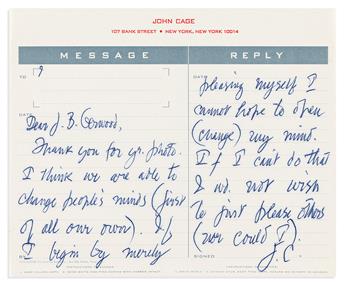 JOHN CAGE
107 BANK STREET • NEW YORK, NEW YORK 10014
MESSAGE
TO
DATE
Dear J. B. Gorwood,
Thank you for yr. photo.
I think we are able to
change people's minds (first
of all our own). If
I begin by merely
REPLY
DATE
pleasing myself I
cannot hope to open
(change) my mind.
If I can't do that
I wd. not wish
to just please others
(nor could I).
J.C.
SIGNED